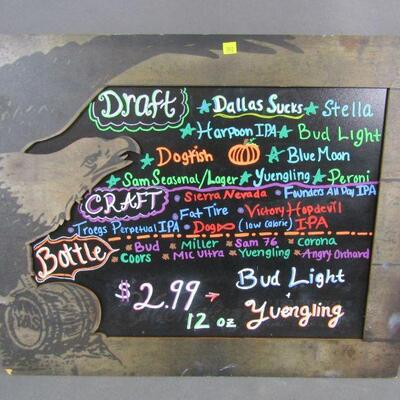 Draft
Dallas Sucks Stella
Harpoon IPA Bud Light
Dogfish Blue Moon
Sam Seasonal/Lager Yuengling Peroni
CRAFT Sierra Nevada Founders All Day IPA
Fat Tire Victory Hopdevil
Troegs Perpetual IPA Dog (low calorie) IPA
Bottle Bud Miller Sam 76 Corona
Coors Mic Ultra Yuengling Angry Orchard
$2.99 Bud Light
12 oz Yuengling